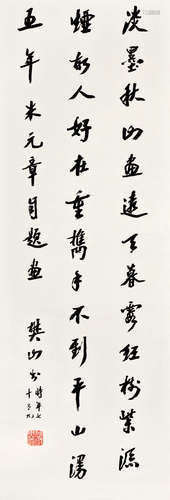 淡墨秋山畫遠天暮霞紅樹紫添
煙故人好在重攜手不到平山漫
五年 米元章自題畫
樊山書
時年七